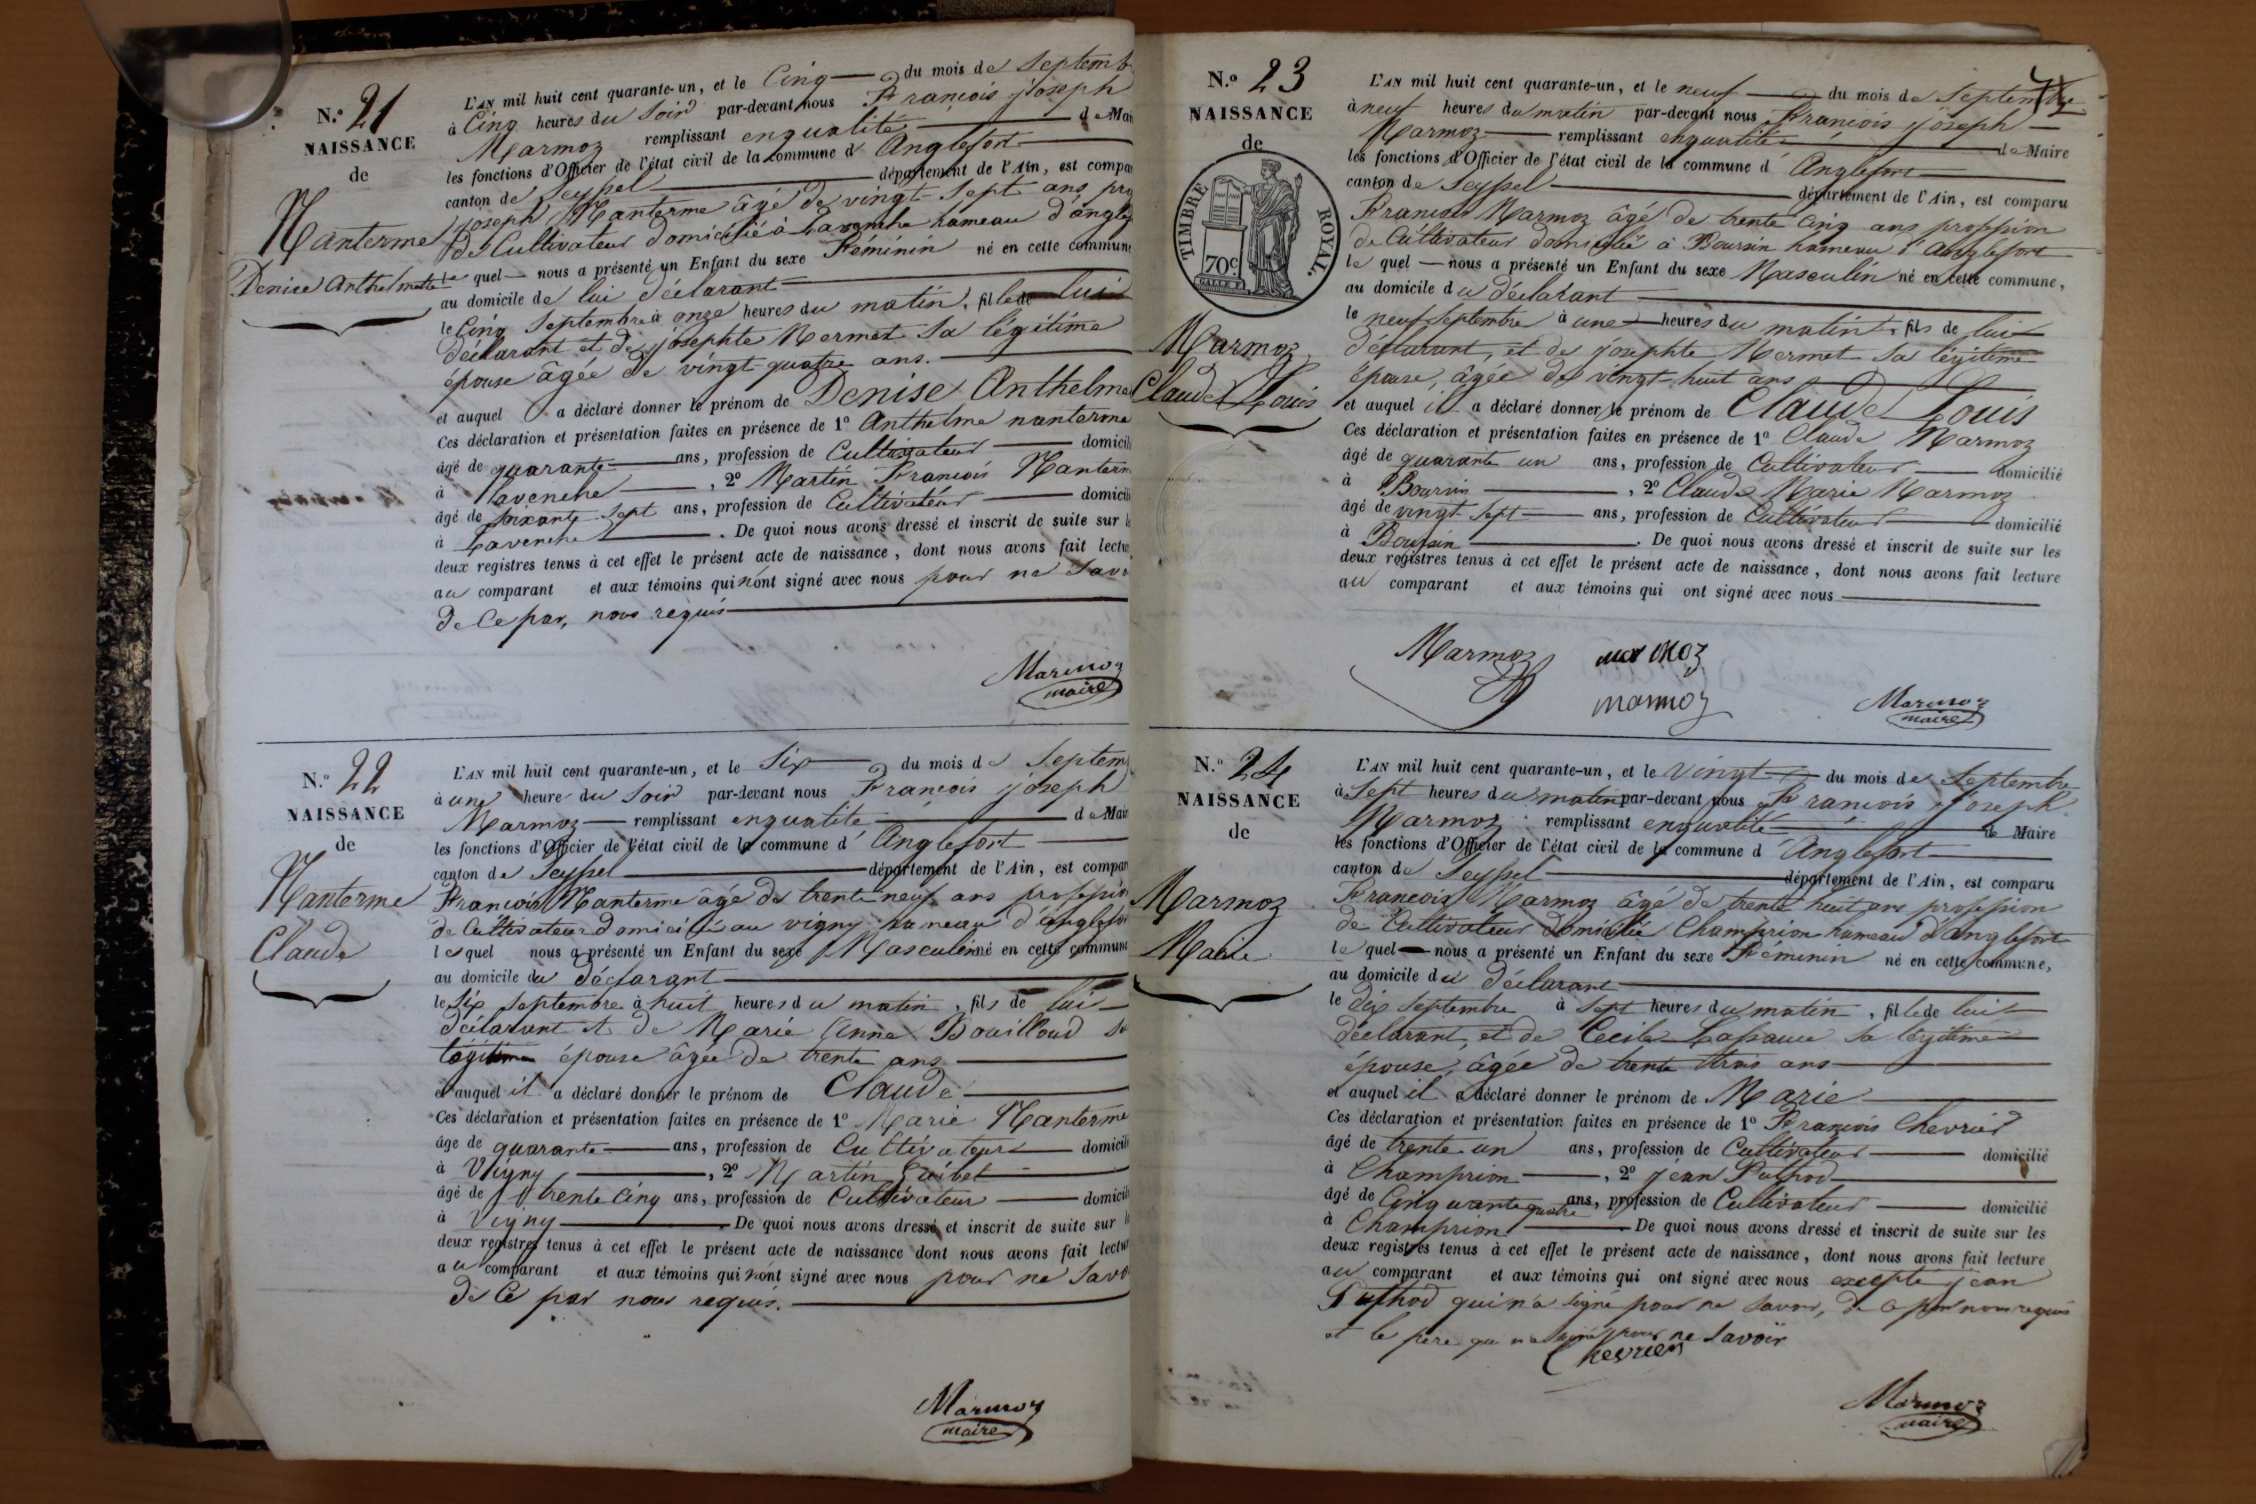 N.º 21
NAISSANCE
de
Nanterme
Denise Anthelmette
L'AN mil huit cent quarante-un, et le Cinq du mois de Septemb
à Cinq heures du Soir par-devant nous François joseph
Marmoz remplissant enqualité de Mai
les fonctions d'Officier de l'état civil de la commune d' Anglefort
canton de Seyssel département de l'Ain, est compa
joseph Nanterme âgé de vingt-Sept ans pro
de Cultivateur domicilié à Lavenche hameau d'angle
le quel nous a présenté un Enfant du sexe Féminin né en cette commune
au domicile de lui déclarant
le Cinq Septembre à onze heures du matin, fille de lui
déclarant et de josephte Mermet Sa légitime
épouse âgée de vingt quatre ans.
et auquel a déclaré donner le prénom de Denise Anthelme
Ces déclaration et présentation faites en présence de 1º Anthelme nanterme
âgé de quarante ans, profession de Cultivateur domicili
à Lavenche, 2º Martin François Nanterm
âgé de soixante Sept ans, profession de Cultivateur domicili
à Lavenche. De quoi nous avons dressé et inscrit de suite sur l
deux registres tenus à cet effet le présent acte de naissance, dont nous avons fait lectu
au comparant et aux témoins qui n'ont signé avec nous pour ne Savo
de Ce par, nous requis
Marmoz
maire
N.º 22
NAISSANCE
de
Nanterme
Claude
L'AN mil huit cent quarante-un, et le Six du mois de Septem
à une heure du Soir par-devant nous François joseph
Marmoz remplissant enqualité de Mai
les fonctions d'Officier de l'état civil de la commune d' Anglefort
canton de Seyssel département de l'Ain, est compar
François Nanterme âgé de trente neuf ans professio
de Cultivateur domicilié au vigny hameau d'anglefor
lequel nous a présenté un Enfant du sexe Masculin né en cette commune
au domicile du déclarant
le Six Septembre à huit heures du matin, fils de lui
déclarant et de Marie Anne Bouilloud Sa
légitime épouse âgée de trente ans
et auquel il a déclaré donner le prénom de Claude
Ces déclaration et présentation faites en présence de 1º Marie Nanterme
âge de quarante ans, profession de Cultivateur domicili
à Vigny, 2º Martin
âgé de trente Cinq ans, profession de Cultivateur domicili
à Vigny. De quoi nous avons dressé et inscrit de suite sur l
deux registres tenus à cet effet le présent acte de naissance dont nous avons fait lectur
au comparant et aux témoins qui n'ont signé avec nous pour ne Savo
de Ce par nous requis.
Marmoz
maire
N.º 23
NAISSANCE
de
TIMBRE ROYAL.
70c
DALLE
Marmoz
Claude Louis
L'AN mil huit cent quarante-un, et le neuf du mois de Septembre
à neuf heures du matin par-devant nous François joseph
Marmoz remplissant enqualité de Maire
les fonctions d'Officier de l'état civil de la commune d' Anglefort
canton de Seyssel département de l'Ain, est comparu
François Marmoz âgé de trente Cinq ans profession
de Cultivateur domicilié à Boursin hameau d'Anglefort
le quel nous a présenté un Enfant du sexe Masculin né en cette commune,
au domicile du déclarant
le neuf Septembre à une heures du matin, fils de lui
déclarant, et de josephte Mermet Sa légitime
épouse, âgée de vingt-huit ans
et auquel il a déclaré donner le prénom de Claude Louis
Ces déclaration et présentation faites en présence de 1º Claude Marmoz
âgé de quarante un ans, profession de Cultivateur domicilié
à Boursin, 2º Claude Marie Marmoz
âgé de vingt Sept ans, profession de Cultivateur domicilié
à Boursin. De quoi nous avons dressé et inscrit de suite sur les
deux registres tenus à cet effet le présent acte de naissance, dont nous avons fait lecture
au comparant et aux témoins qui ont signé avec nous
Marmoz marmoz
marmoz
Marmoz
maire
N.º 24
NAISSANCE
de
Marmoz
Marie
L'AN mil huit cent quarante-un, et le Vingt du mois de Septembre
à Sept heures du matin par-devant nous François joseph
Marmoz remplissant enqualité de Maire
les fonctions d'Officier de l'état civil de la commune d' Anglefort
canton de Seyssel département de l'Ain, est comparu
François Marmoz âgé de trente huit ans profession
de Cultivateur domicilié Champrion hameau d'anglefort
le quel nous a présenté un Enfant du sexe Féminin né en cette commune,
au domicile du déclarant
le dix Septembre à Sept heures du matin, fille de lui
déclarant, et de Cecile Sa légitime
épouse, âgée de trente trois ans
et auquel il a déclaré donner le prénom de Marie
Ces déclaration et présentation faites en présence de 1º François Chevrier
âgé de trente un ans, profession de Cultivateur domicilié
à Champrion, 2º jean Puthod
âgé de Cinquante quatre ans, profession de Cultivateur domicilié
à Champrion. De quoi nous avons dressé et inscrit de suite sur les
deux registres tenus à cet effet le présent acte de naissance, dont nous avons fait lecture
au comparant et aux témoins qui ont signé avec nous excepté jean
Puthod qui n'a signé pour ne Savoir, de Ce par nous requis
et le père qui n'a signé pour ne Savoir
Chevrier
Marmoz
maire